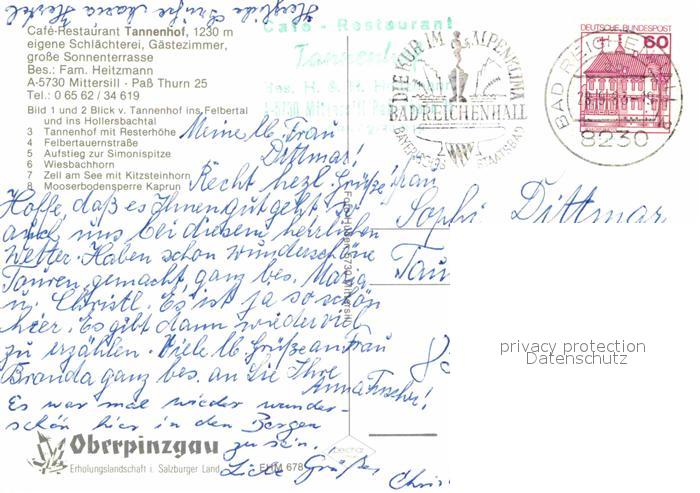 Herzliche Grüße Maria Herkel
Café-Restaurant Tannenhof, 1230 m
eigene Schlächterei, Gästezimmer,
große Sonnenterrasse
Bes.: Fam. Heitzmann
A-5730 Mittersill - Paß Thurn 25
Tel.: 0 65 62 / 34 619
Bild 1 und 2 Blick v. Tannenhof ins Felbertal
und ins Hollersbachtal
3 Tannenhof mit Resterhöhe
4 Felbertauernstraße
5 Aufstieg zur Simonispitze
6 Wiesbachhorn
7 Zell am See mit Kitzsteinhorn
8 Mooserbodensperre Kaprun
Café - Restaurant
Tannenhof
Bes. H. & H. Heitzmann
A-5730 Mittersill, Paß
DIE KUR IM ALPENKLIMA
BAD REICHENHALL
BAYERISCHES STAATSBAD
DEUTSCHE BUNDESPOST
60
BAD REICHENHALL
8230
Meine lb. Frau
Dittmar!
Recht herzl. Grüße
Hoffe, daß es Ihnen gut geht, so
auch uns bei diesem herrlichen
Wetter. Haben schon wunderschöne
Touren gemacht, ganz bes. Maria
u. Christl. Es ist ja so schön
hier. Es gibt dann wieder viel
zu erzählen. Viele lb. Grüße an Frau
Branda ganz bes. an Sie Ihre
Anna Fischer!
Es war mal wieder wunder-
schön hier in den Bergen
zu sein.
Liebe Grüße
Chris
Frau
Sophi Dittmar
Tau
8
privacy protection
Datenschutz
Oberpinzgau
Erholungslandschaft i. Salzburger Land
FHM 678